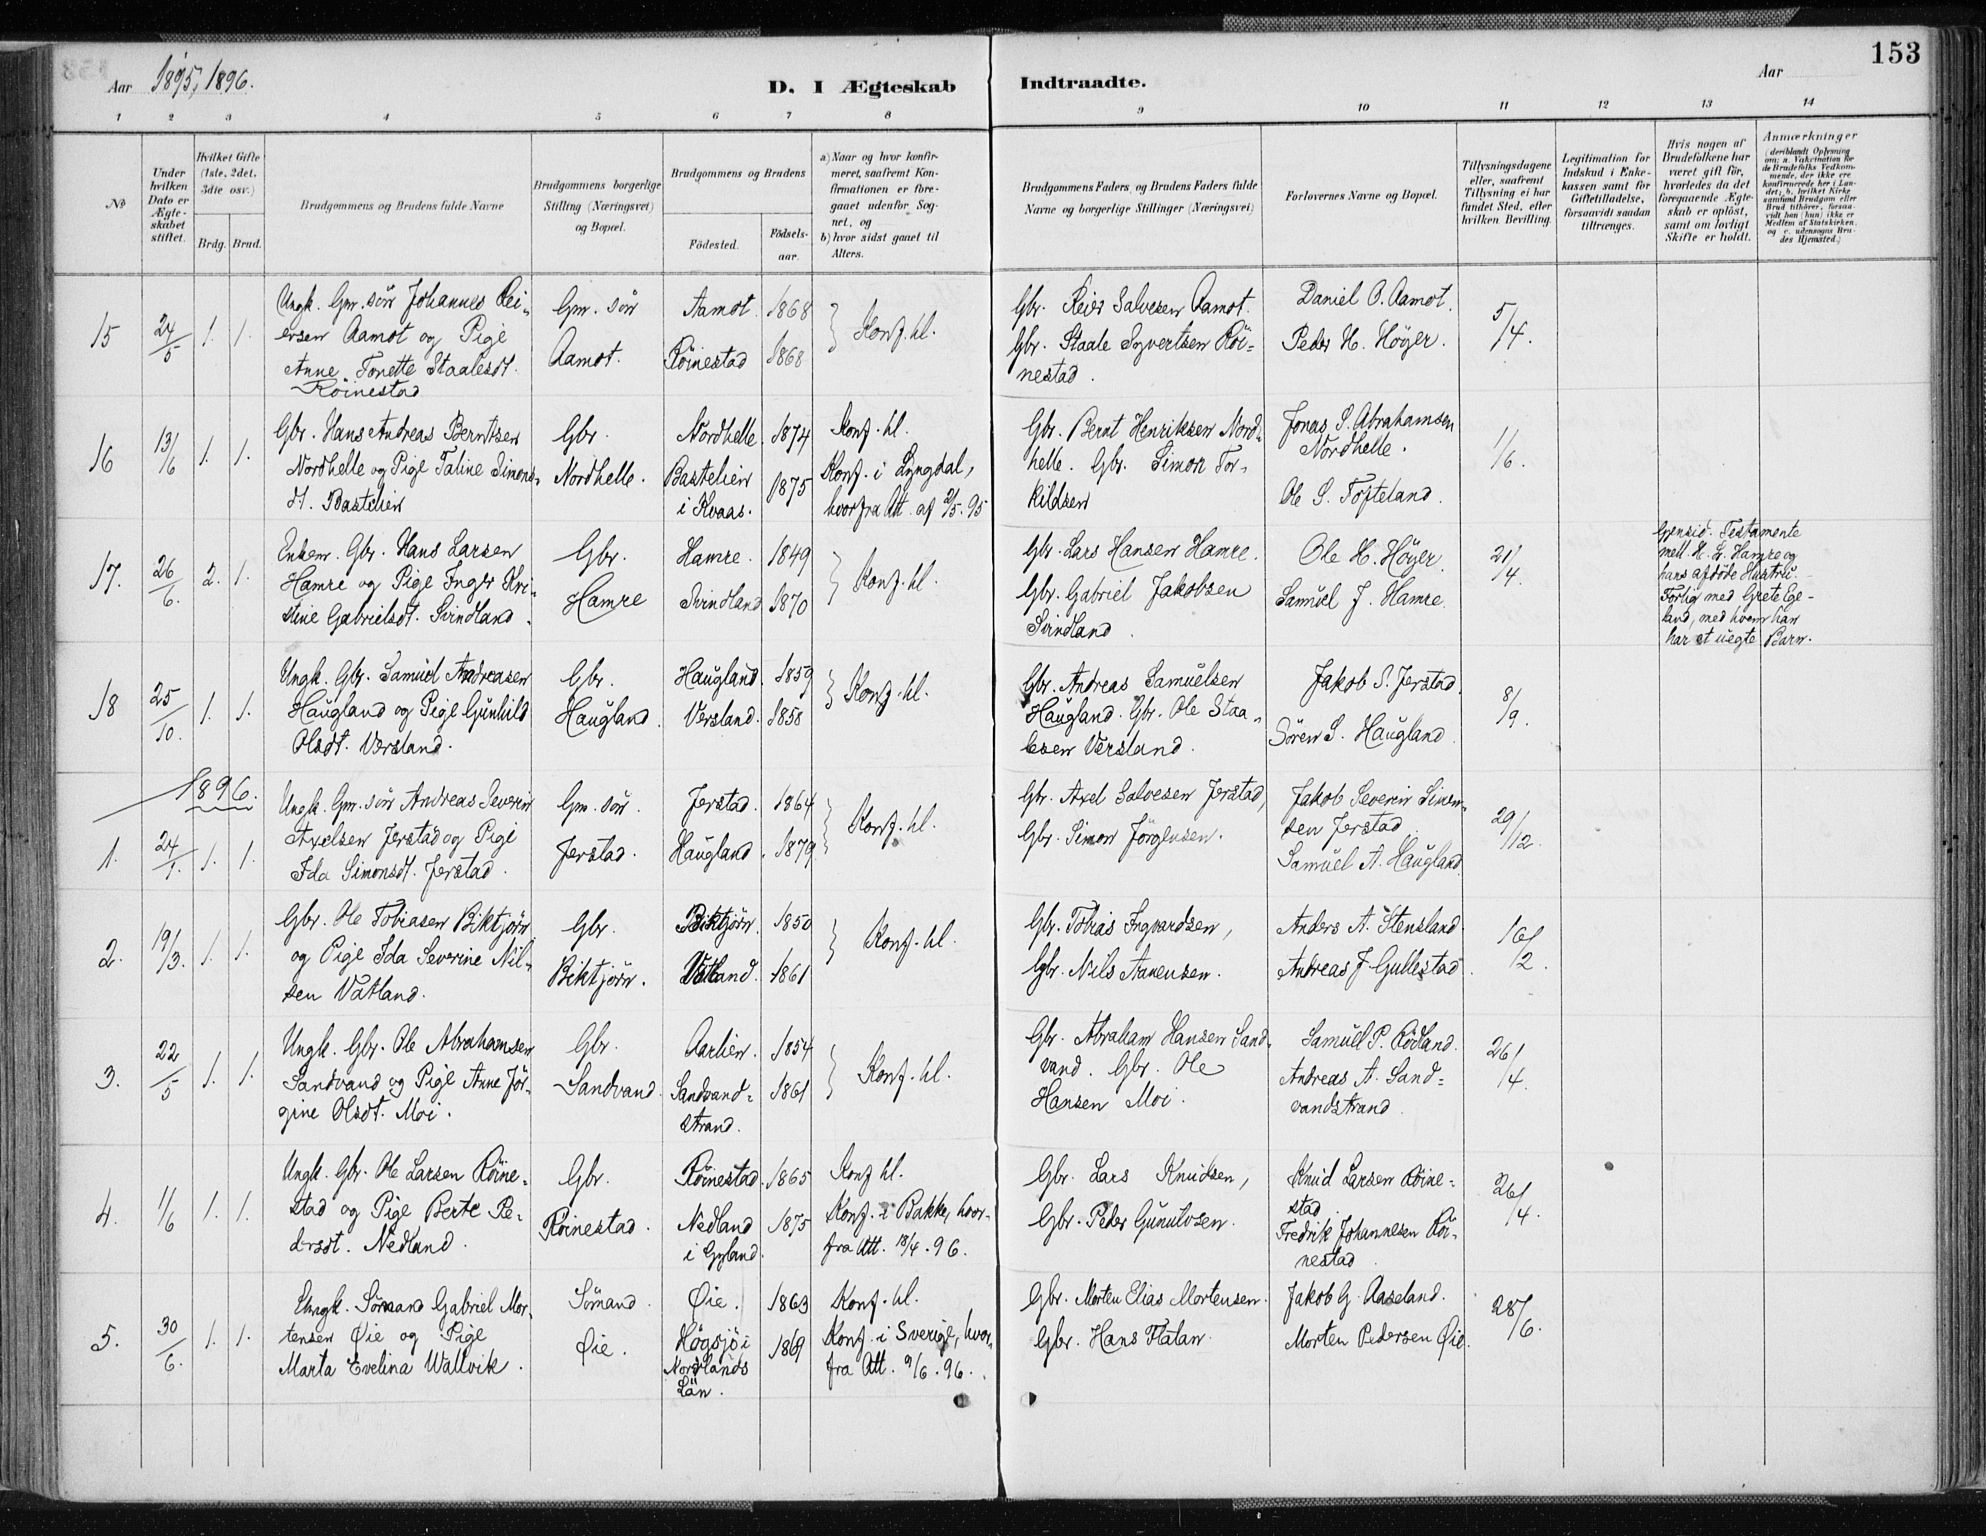 153
Aar 1895, 1896.
D. I Ægteskab Indtraadte.
Aar
1 2 3 4 5 6 7 8 9 10 11 12 13 14
No
Under hvilken Dato er Ægteskabet stiftet.
Hvilket Gifte (1ste, 2det, 3die osv.)
Brdg. Brud.
Brudgommens og Brudens fulde Navne
Brudgommens borgerlige Stilling (Næringsvei) og Bopæl.
Brudgommens og Brudens
Fødested.
Fødselsaar.
a) Naar og hvor konfirmeret, saafremt Konfirmationen er foregaaet udenfor Sognet, og
b) hvor sidst gaaet til Alters.
Brudgommens Faders og Brudens Faders fulde Navne og borgerlige Stillinger (Næringsvei)
Forlovernes Navne og Bopæl.
Tillysningsdagene eller, saafremt Tillysning ei har fundet Sted, efter hvilken Bevilling.
Legitimation for Indskud i Enkekassen samt for Giftetilladelse, forsaavidt saadan tiltrænges.
Hvis nogen af Brudefolkene har været gift før, hvorledes da det foregaaende Ægteskab er opløst, samt om lovligt Skifte er holdt.
Anmærkninger
(deriblandt Oplysning om: a. Vakcination for de Brudefolks Vedkommende, der ikke ere konfirmerede her i Landet; b. hvilket Kirkesamfund Brudgom eller Brud tilhører, forsaavidt han (hun) ikke er Medlem af Statskirken, og c. udensogns Brudes Hjemsted.)
15 24/5 1. 1.
Ungk. Gm. søn Johannes Rei-
ersen Aamot og Pige
Anne Tonette Staalesdt.
Røinestad
Gm. søn
Aamot.
Aamot. 1868
Røinestad 1868
Konf. hl.
Gbr. Reier Salvesen Aamot.
Gbr. Staale Syvertsen Röi=
nestad.
Daniel O. Aamot.
Peder H. Höyer.
5/4.
16 13/6 1. 1.
Gbr. Hans Andreas Berntsen
Nordhelle og Pige Taline Simons-
dt. Bastelien
Gbr.
Nordhelle.
Nordhelle. 1874
Bastelien 1875
i Kvaas.
Konf. hl.
Konf. i Lyngdal,
hvorfra Att. af 2/5. 95
Gbr. Bernt Henriksen Nord-
helle. Gbr. Simon Tor-
kildsen
Jonas S. Abrahamsen
Nordhelle.
Ole S. Tofteland.
1/6.
17. 26/6. 2. 1.
Enkem. Gbr. Hans Larsen
Hamre og Pige Inger Kri-
stine Gabrielsdt. Svindland.
Gbr.
Hamre
Hamre. 1849
Svindland 1870
Konf. hl.
Gbr. Lars Hansen Hamre.
Gbr. Gabriel Jakobsen
Svindland.
Ole H. Höyer.
Samuel J. Hamre.
21/4.
Gjensid. Testamente
mell. H. L. Hamre og
hans afdöde Hustru. -
Forlig med Grete Ege-
land, med hvem han
har et uegte Barn.
18 25/10. 1. 1.
Ungk. Gbr. Samuel Andreasen
Haugland og Pige Gunhild
Olsdt. Versland.
Gbr.
Haugland.
Haugland. 1859
Versland. 1858
Konf. hl.
Gbr. Andreas Samuelsen
Haugland. Gbr. Ole Staa-
lesen Versland.
Jakob S. Jerstad.
Sören S. Haugland
8/9.
1896.
1. 24/1. 1. 1.
Ungk. Gm. søn Andreas Severin
Axelsen Jerstad og Pige
Ida Simonsdt. Jerstad.
Gm. søn.
Jerstad.
Jerstad. 1864
Haugland. 1879
Konf. hl.
Gbr. Axel Salvesen Jerstad,
Gbr. Simon Jörgensen.
Jakob Severin Simon-
sen Jerstad
Samuel A. Haugland
29/12.
2. 19/3. 1. 1.
Gbr. Ole Tobiasen Biktjørn
og Pige Ida Severine Nil-
sen Vatland.
Gbr.
Biktjørn.
Biktjørn. 1850
Vatland. 1861
Konf. hl.
Gbr. Tobias Ingvardsen,
Gbr. Nils Aanensen.
Anders A. Stensland.
Andreas J Gullestad.
16/2.
3. 22/5 1. 1.
Ungk. Gbr. Ole Abrahamsen
Sandvand og Pige Anne Jör-
gine Olsdt. Moi.
Gbr.
Sandvand.
Aarlien. 1854
Sandvand= 1861
strand.
Konf. hl.
Gbr. Abraham Hansen Sand-
vand. Gbr. Ole
Hansen Moi.
Samuel P. Rödland.
Andreas A. Sand=
vandstrand.
26/4.
4. 11/6 1. 1.
Ungk. Gbr. Ole Larsen Röine-
stad og Pige Berte Pe-
dersdt. Nedland.
Gbr.
Røinestad.
Røinestad. 1865
Nedland 1875
i Gyland.
Konf hl.
Konf. i Bakke, hvor-
fra Att. 18/4. 96.
Gbr. Lars Knudsen,
Gbr. Peder Gunulvsen.
Knud Larsen Röine-
stad.
Fredrik Johannesen Röi-
nestad.
26/4.
5. 30/6. 1. 1.
Ungk. Sömand Gabriel Mor-
tensen Øie og Pige
Marta Evelina Wallvik.
Sömand.
Øie.
Øie. 1863
Högsjö i 1869
Nordlands
Län.
Konf. hl.
Konf. i Sverige, hvor-
fra Att. 9/6. 96.
Gbr. Morten Elias Mortensen.
Gbr. Hans Flatan.
Jakob G. Aaseland.
Morten Pedersen Øie.
28/6.